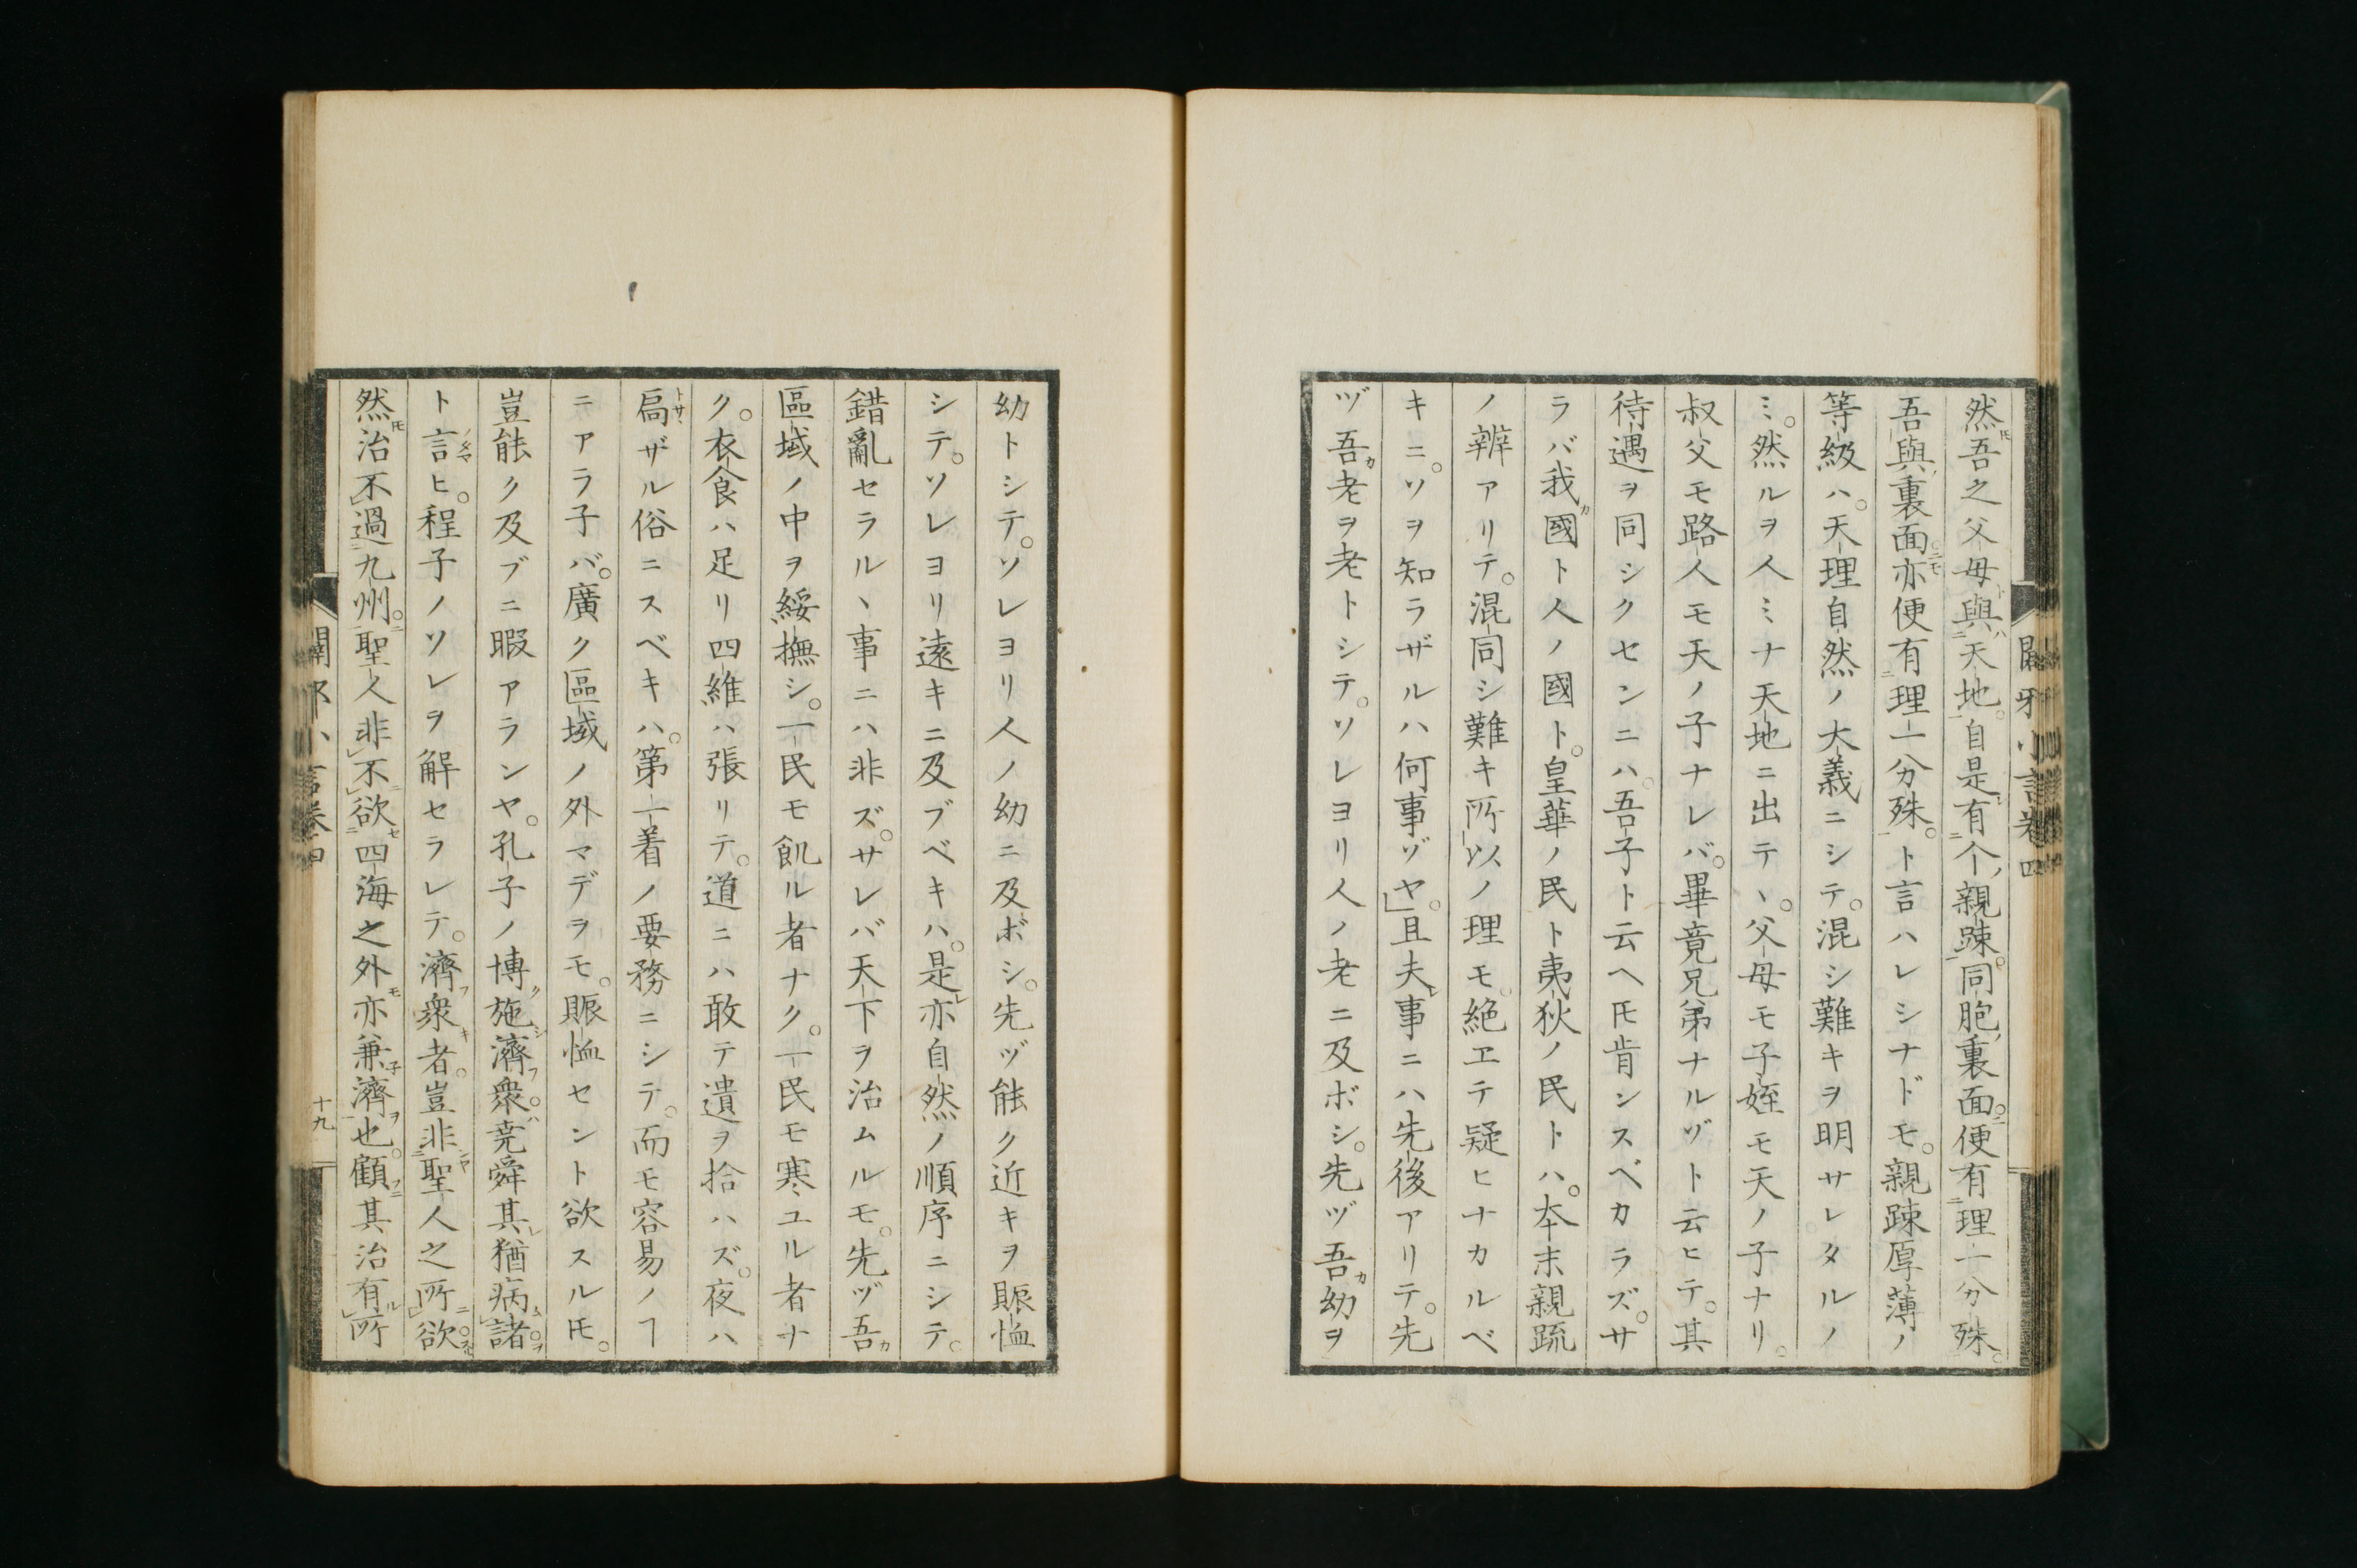 然吾之父母與天地。自是有个親疎。同胞裏面。便有理一分殊。
吾與裏面。亦便有理一分殊。ト言ハレシナドモ。親踈厚薄ノ
等級ハ。天理自然ノ大義ニシテ。混シ難キヲ明サレタルノ
ミ。然ルヲ人ミナ天地ニ出テヽ。父母モ子姪モ天ノ子ナリ。
叔父モ路人モ天ノ子ナレバ。畢竟兄弟ナルゾト云ヒテ。其
待遇ヲ同シクセンニハ。吾子ト云ヘ𪜈肯ンスベカラズ。サ
ラバ我國ト人ノ國ト。皇華ノ民ト夷狄ノ民トハ。本末親疏
ノ辨アリテ。混同シ難キ所以ノ理モ絶エテ疑ヒナカルベ
キニ。ソヲ知ラザルハ何事ゾヤ。且夫事ニハ先後アリテ。先
ヅ吾老ヲ老トシテ。ソレヨリ人ノ老ニ及ボシ。先ヅ吾幼ヲ
闢邪小言卷四
幼トシテ。ソレヨリ人ノ幼ニ及ボシ。先ヅ能ク近キヲ賑恤
シテ。ソレヨリ遠キニ及ブベキハ。是亦自然ノ順序ニシテ。
錯亂セラルヽ事ニハ非ズ。サレバ天下ヲ治ムルモ。先ヅ吾
區域ノ中ヲ綏撫シ。一民モ飢ル者ナク。一民モ寒ユル者ナ
ク。衣食ハ足リ四維ハ張リテ。道ニハ敢テ遺ヲ拾ハズ。夜ハ
扃ザル俗ニスベキハ。第一着ノ要務ニシテ。而モ容易ノヿ
ニアラ子バ。廣ク區域ノ外マデヲモ。賑恤セント欲スル𪜈。
豈能ク及ブニ暇アランヤ。孔子ノ博施濟衆。堯舜其猶病諸
ト言ヒ。程子ノソレヲ解セラレテ。濟衆者。豈非聖人之所欲。
然治不過九州。聖人非不欲四海之外亦兼濟也。顧其治有所
闢邪小言卷四
十九